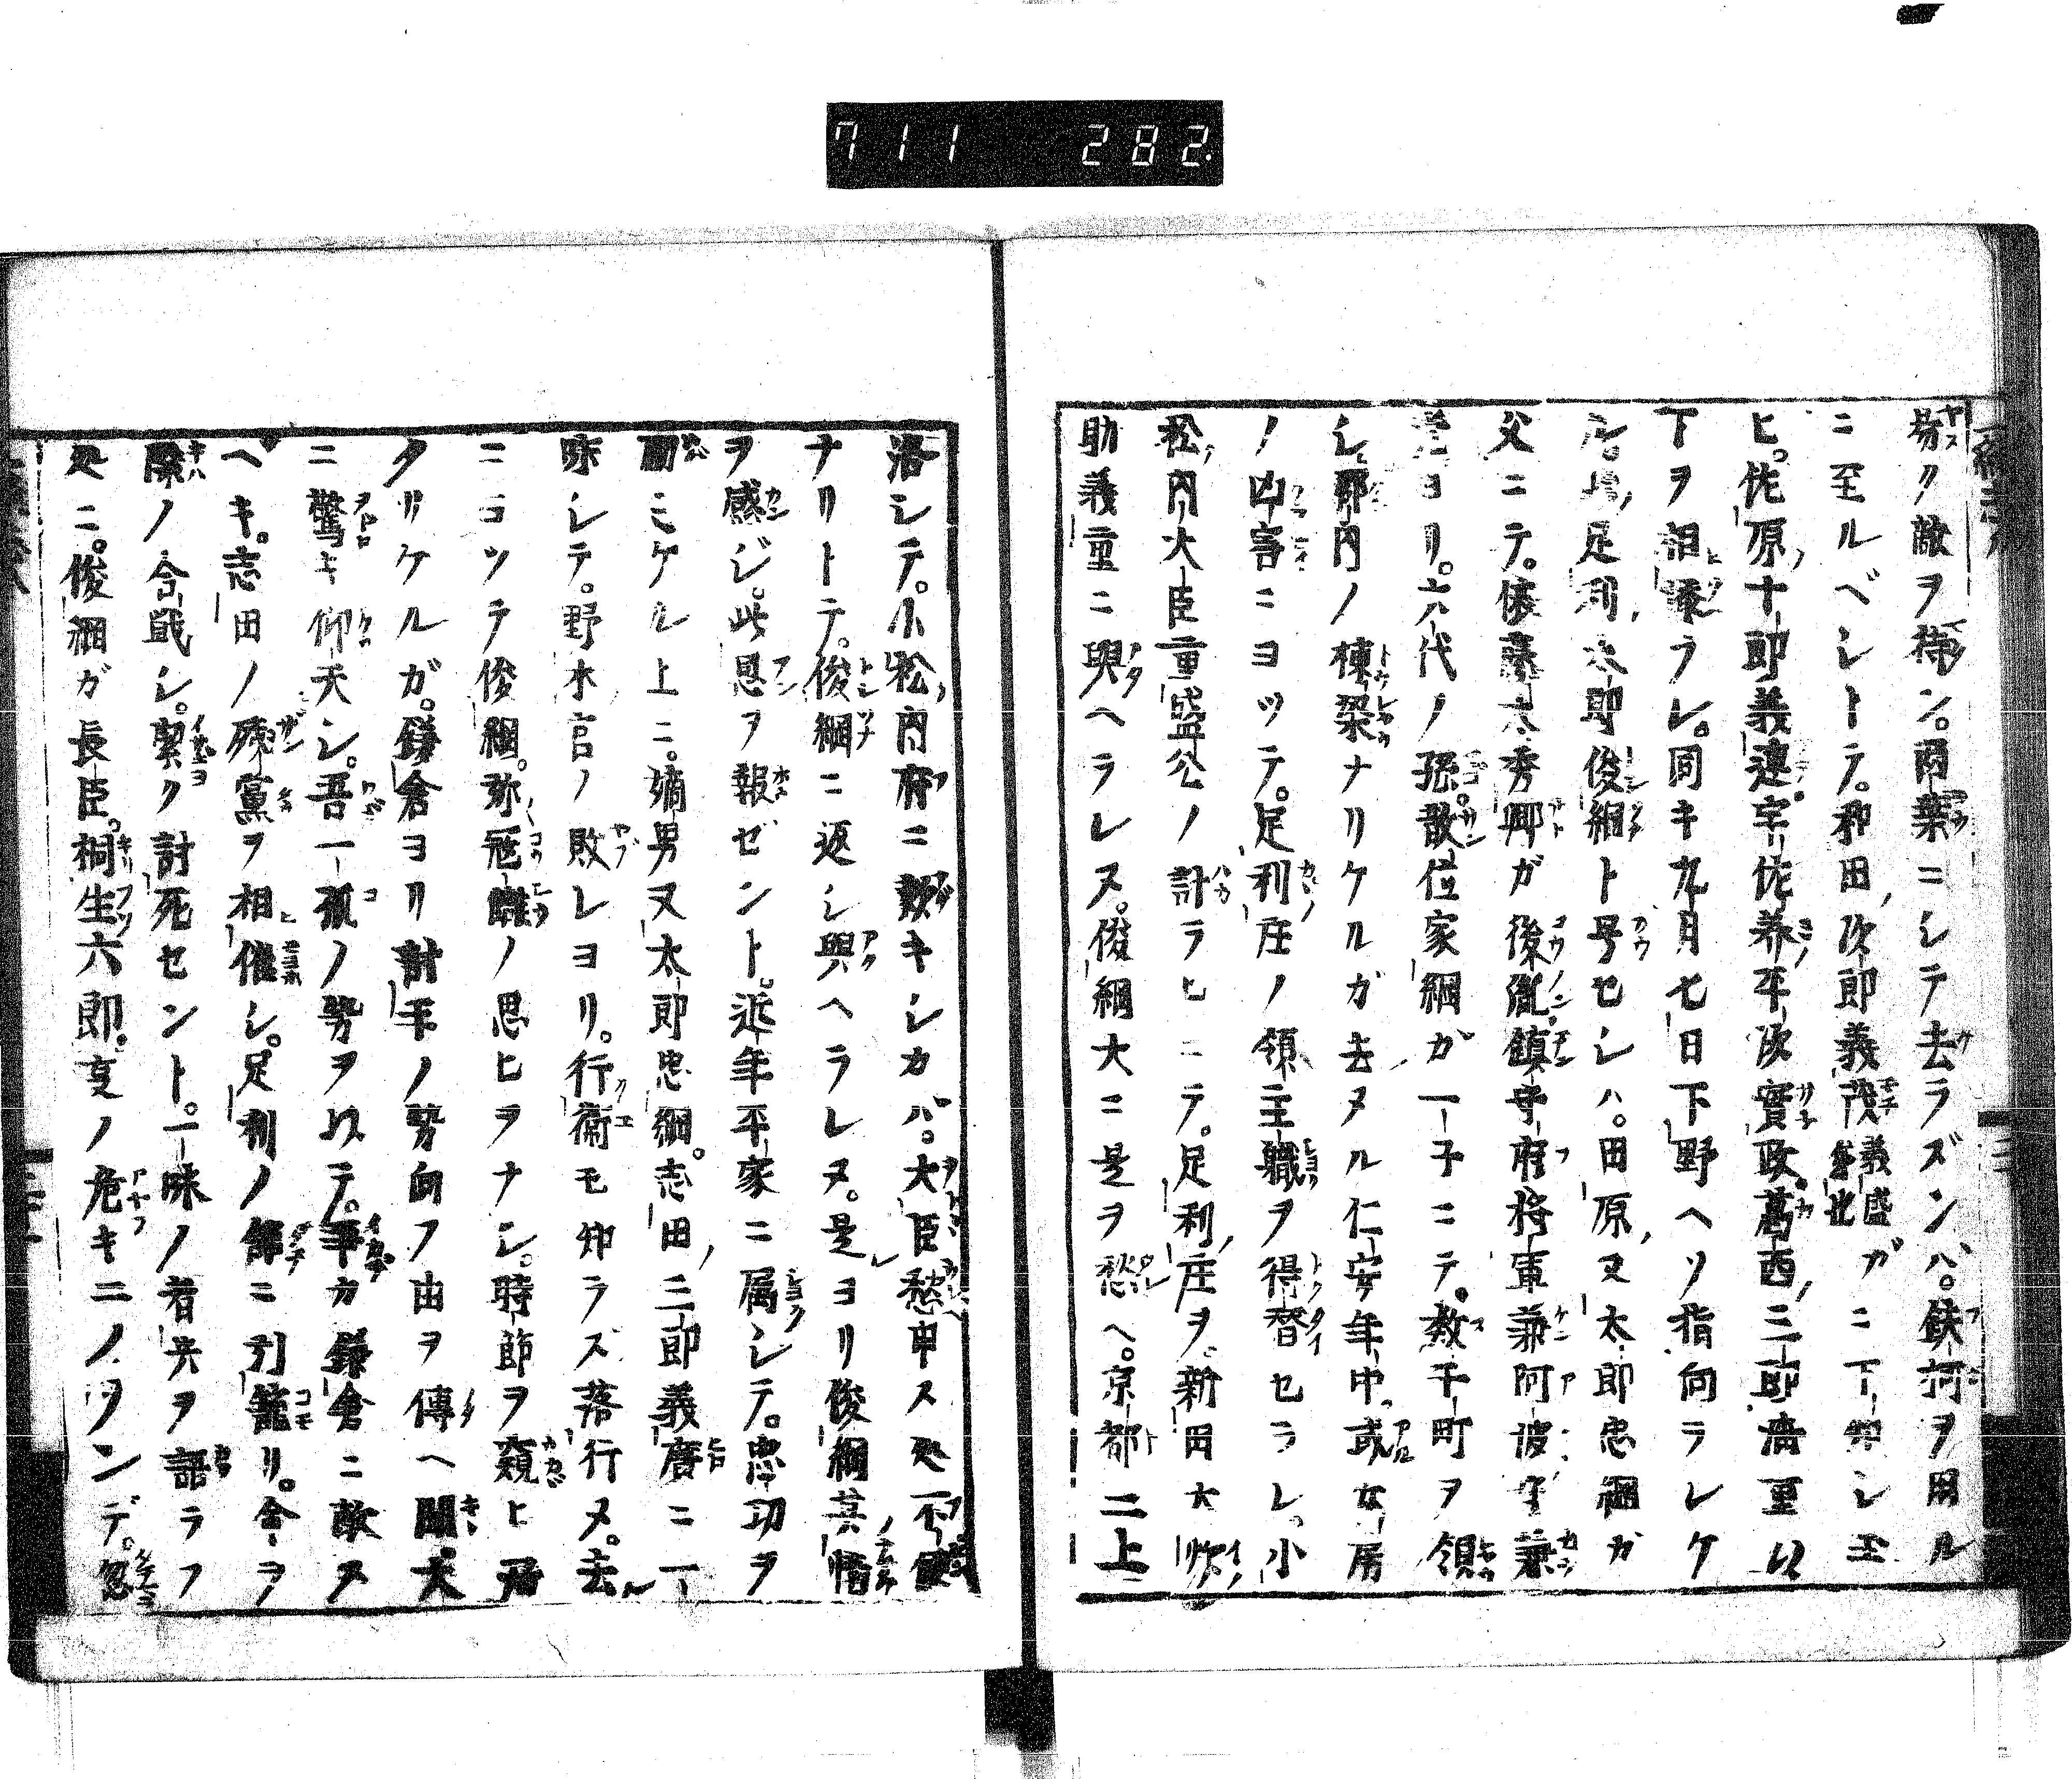 711 282.
易ク敵ヲ得ン。両葉ニシテ去ラズンハ。鈇柯ヲ用ル
ニ至ルベシトテ。和田次郎義茂義盛舎弟ガニ下知シ玉
ヒ。佐原十郎義連。宇佐美平次實政。葛西三郎清重以
下ヲ相添ラレ。同キ九月七日下野ヘソ指向ラレケ
ル。足利太郎俊綱ト号セシハ。田原又太郎忠綱カ
父ニテ。俵藤太秀郷ガ後胤。鎮守府将軍兼阿波守兼
ヨリ。六代ノ孫。散位家綱ガ一子ニテ。数千町ヲ領
シ。郡内ノ棟梁ナリケルガ去ヌル仁安年中。或女房
ノ凶害ニヨツテ。足利庄ノ領主職ヲ得替セラレ。小
松内大臣重盛公ノ計ラヒニテ。足利庄ヲ。新田大炊
助義重ニ與ヘラレヌ。俊綱大ニ是ヲ愁ヘ。京都ニ上
洛シテ。小松内府ニ歎キシカバ。大臣愁申ス処不便
ナリトテ。俊綱ニ返シ與ヘラレヌ。是ヨリ俊綱其恩
ヲ感ジ。此恩ヲ報ゼント。近年平家ニ属シテ。忠功ヲ
勵ミケル上ニ。嫡男又太郎忠綱。志田三郎義廣ニ一
味シテ。野木宮ノ敗レヨリ。行衛モ知ラズ落行ヌ。去
ニヨツテ俊綱。弥冦讎ノ思ヒヲナシ。時節ヲ窺ヒ居
タリケルガ。鎌倉ヨリ討手ノ勢向フ由ヲ傳ヘ聞。大
ニ驚キ仰天シ。吾一孤ノ勢ヲ以テ。争カ鎌倉ニ敵ス
ヘキ。志田ノ殘黨ヲ相催シ。足利ノ舘ニ引籠リ。命ヲ
際ノ合戦シ。潔ク討死セント。一味ノ者共ヲ語ラフ
処ニ。俊綱ガ長臣。桐生六郎。主ノ危キニノゾンデ。忽